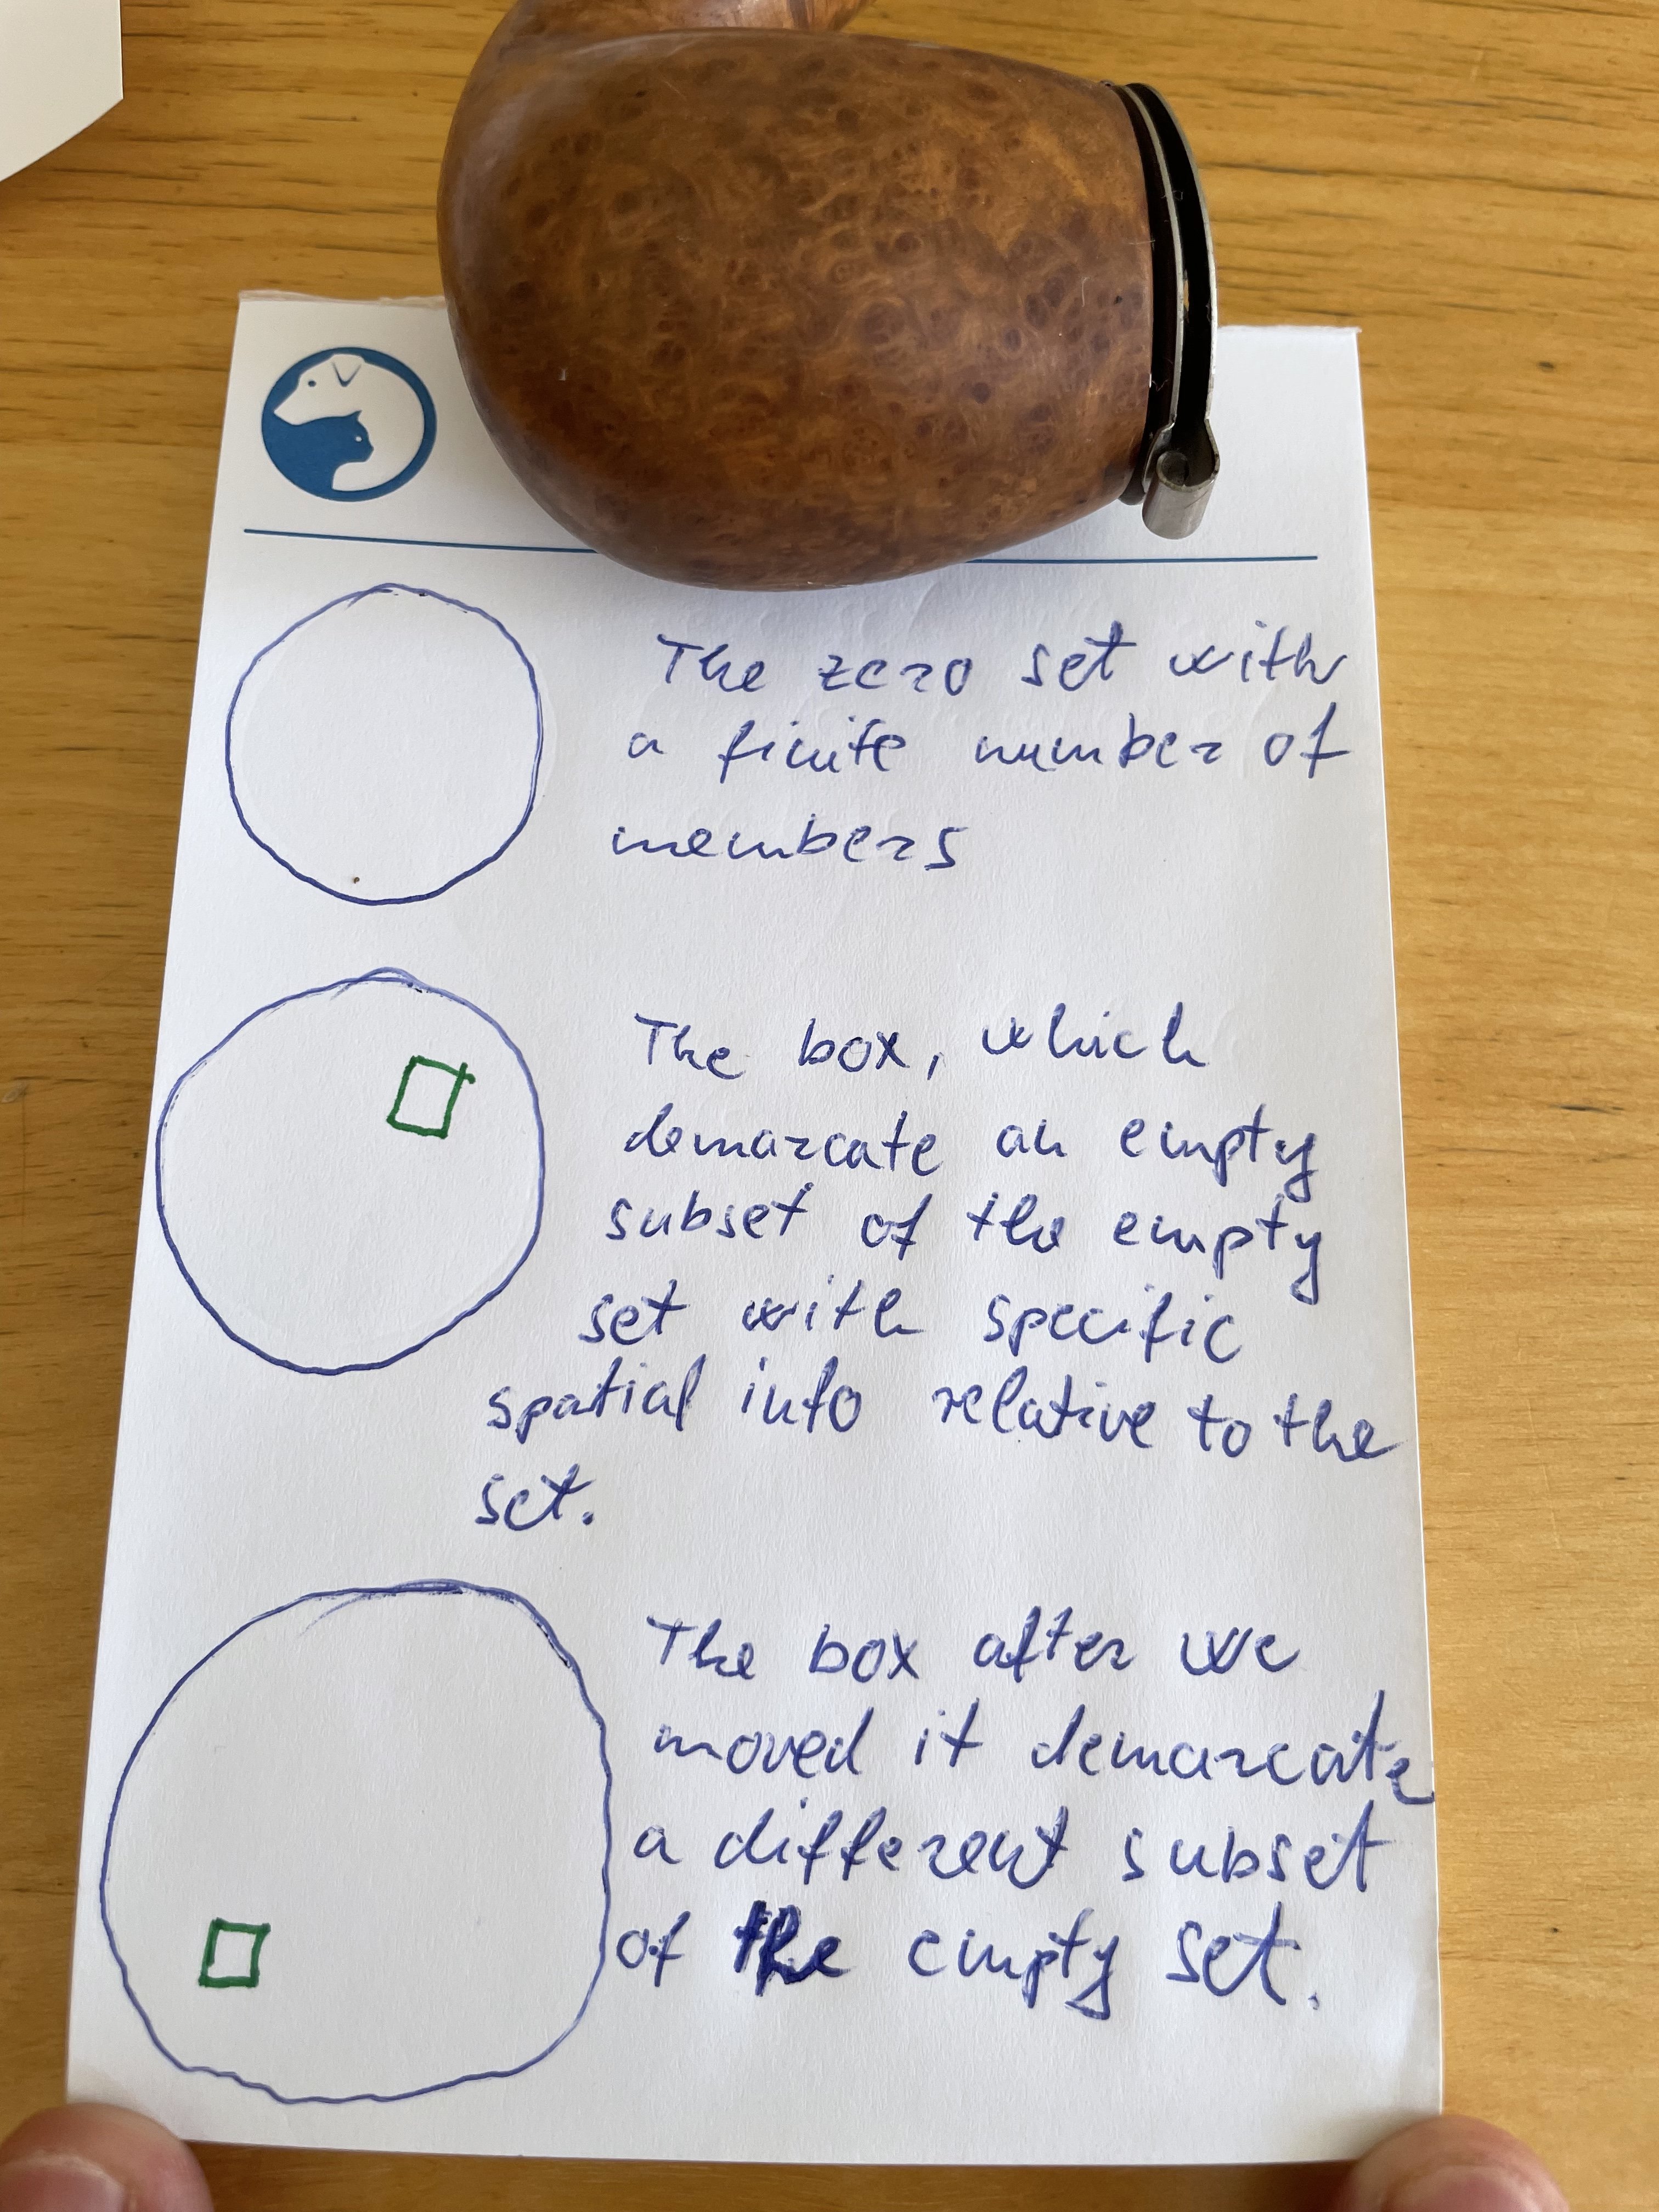 The zero set with
a finite number of
members
The box, which
demarcate an empty
subset of the empty
set with specific
spatial info relative to the
set.
The box after we
moved it demarcate
a different subset
of the empty set.